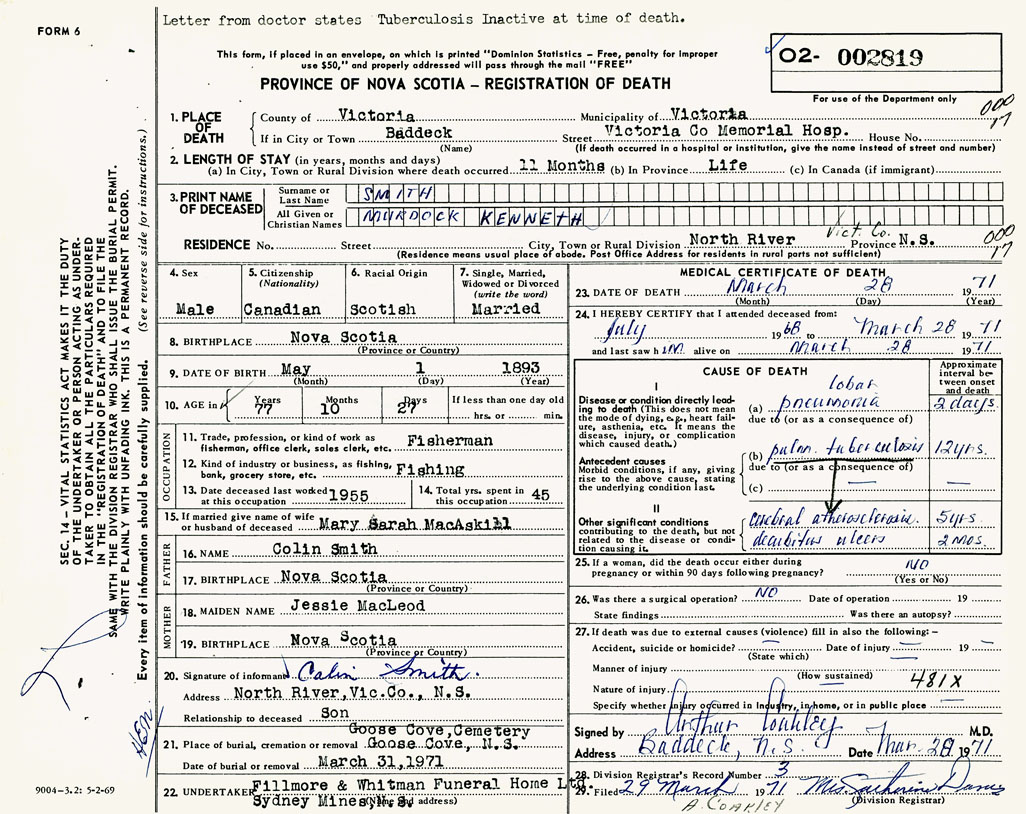 Letter from doctor states Tuberculosis Inactive at time of death.
FORM 6
This form, if placed in an envelope, on which is printed "Dominion Statistics – Free, penalty for improper
use $50," and properly addressed will pass through the mail "FREE"
PROVINCE OF NOVA SCOTIA – REGISTRATION OF DEATH
O2- 002819
For use of the Department only
000
17
1. PLACE OF DEATH
County of Victoria Municipality of Victoria
If in City or Town Baddeck Street Victoria Co Memorial Hosp. House No.
(Name) (If death occurred in a hospital or institution, give the name instead of street and number)
2. LENGTH OF STAY (in years, months and days)
(a) In City, Town or Rural Division where death occurred 11 Months (b) In Province Life (c) In Canada (if immigrant)
3. PRINT NAME OF DECEASED
Surname or Last Name SMITH
All Given or Christian Names MURDOCK KENNETH
Vict. Co.
RESIDENCE No. Street City, Town or Rural Division North River Province N.S.
000
17
(Residence means usual place of abode. Post Office Address for residents in rural parts not sufficient)
4. Sex
Male
5. Citizenship
(Nationality)
Canadian
6. Racial Origin
Scotish
7. Single, Married,
Widowed or Divorced
(write the word)
Married
8. BIRTHPLACE Nova Scotia
(Province or Country)
9. DATE OF BIRTH May 1 1893
(Month) (Day) (Year)
10. AGE in Years Months Days If less than one day old
77 10 27 hrs. or min.
OCCUPATION
11. Trade, profession, or kind of work as
fisherman, office clerk, sales clerk, etc. Fisherman
12. Kind of industry or business, as fishing,
bank, grocery store, etc. Fighing
13. Date deceased last worked
at this occupation 1955
14. Total yrs. spent in
this occupation 45
15. If married give name of wife
or husband of deceased Mary Sarah MacAskill
FATHER
16. NAME Colin Smith
17. BIRTHPLACE Nova Scotia
(Province or Country)
MOTHER
18. MAIDEN NAME Jessie MacLeod
19. BIRTHPLACE Nova Scotia
(Province or Country)
20. Signature of informant Colin Smith.
Address North River,Vic.Co., N.S.
Relationship to deceased Son
Goose Cove,Cemetery
21. Place of burial, cremation or removal Goose Cove, N.S.
Date of burial or removal March 31,1971
22. UNDERTAKER Fillmore & Whitman Funeral Home Ltd.
Sydney Mines,N.S.
(Name and address)
MEDICAL CERTIFICATE OF DEATH
23. DATE OF DEATH March 28 1971
(Month) (Day) (Year)
24. I HEREBY CERTIFY that I attended deceased from:
July 1968 to March 28 1971
and last saw him alive on March 28 1971
CAUSE OF DEATH
Approximate
interval be-
tween onset
and death
I
Disease or condition directly lead-
ing to death (This does not mean
the mode of dying, e.g., heart fail-
ure, asthenia, etc. It means the
disease, injury, or complication
which caused death.)
lobar
(a) pneumonia 2 days.
due to (or as a consequence of)
Antecedent causes
Morbid conditions, if any, giving
rise to the above cause, stating
the underlying condition last.
(b) pulm. tuberculosis 12 yrs.
due to (or as a consequence of)
(c) — —
II
Other significant conditions
contributing to the death, but not
related to the disease or condi-
tion causing it.
cerebral atherosclerosis. 5 yrs
decubitus ulcers 2 mos.
25. If a woman, did the death occur either during
pregnancy or within 90 days following pregnancy? NO
(Yes or No)
26. Was there a surgical operation? NO Date of operation 19
State findings Was there an autopsy?
27. If death was due to external causes (violence) fill in also the following: –
Accident, suicide or homicide? — Date of injury — 19 –
(State which)
Manner of injury —
(How sustained)
Nature of injury 481X
Specify whether injury occurred in Industry, in home, or in public place
Signed by Arthur Coakley M.D.
Address Baddeck, N.S. Date Mar. 28 1971
28. Division Registrar's Record Number 3
29. Filed 29 March 1971 Mrs.
A. COAKLEY (Division Registrar)
SEC. 14 – VITAL STATISTICS ACT MAKES IT THE DUTY
OF THE UNDERTAKER OR PERSON ACTING AS UNDER-
TAKER TO OBTAIN ALL THE PARTICULARS REQUIRED
IN THE "REGISTRATION OF DEATH" AND TO FILE THE
SAME WITH THE DIVISION REGISTRAR WHO SHALL ISSUE THE BURIAL PERMIT.
WRITE PLAINLY WITH UNFADING INK. THIS IS A PERMANENT RECORD.
Every item of information should be carefully supplied. (See reverse side for instructions.)
9004-3.2: 5-2-69